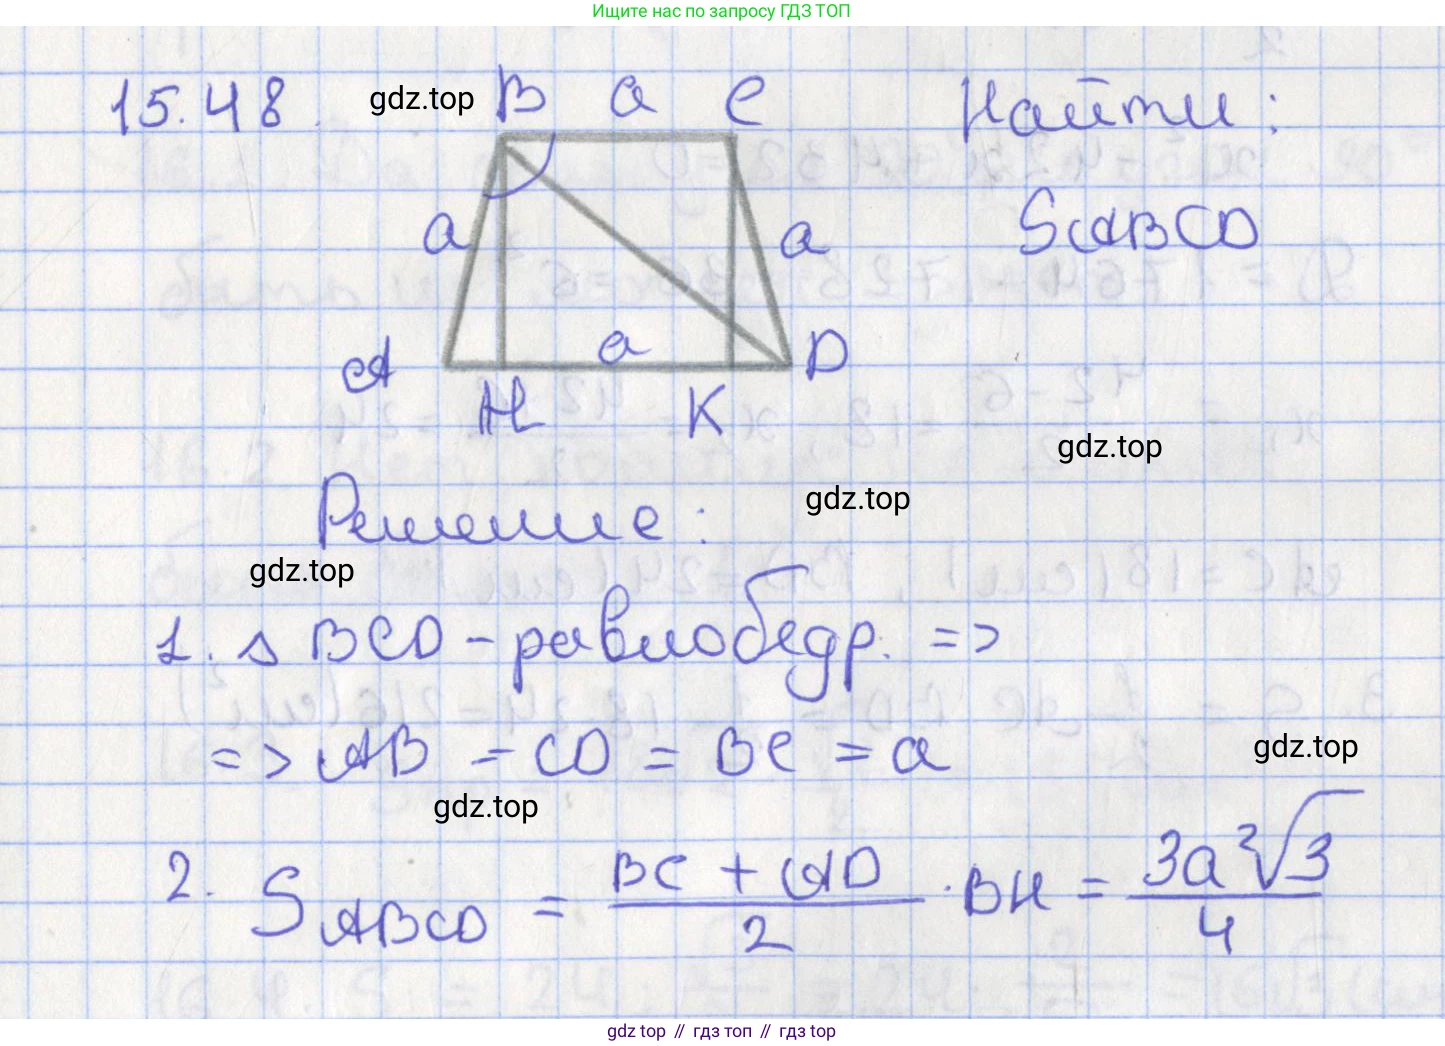 Ищите нас по запросу ГДЗ ТОП
15.48. gdz.top B a C Найти:
a a SABCD
A a D
H K
gdz.top
Решение: gdz.top
gdz.top
1. △ BCD - равнобедр. =>
=> AB = CD = BC = a gdz.top
gdz.top
2. SABCD = BC + AD / 2 · BH = 3a²√3 / 4
gdz top // гдз топ // гдз top